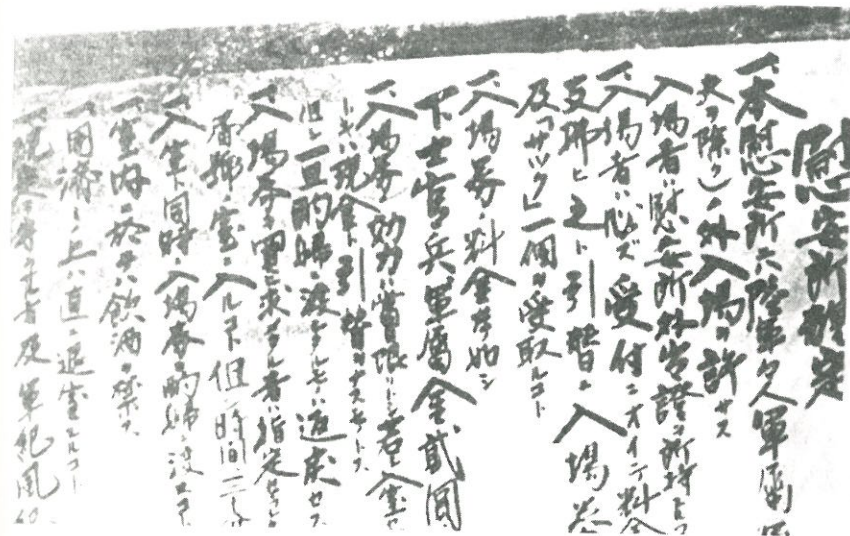 慰安所規定
一、本慰安所ニハ陸軍々人軍属(軍
夫ヲ除ク)ノ外入場ヲ許サス
入場者ハ慰安所外出証ヲ所持スルコ
一、入場者ハ必ズ受付ニオイテ料金
支拂ヒ之ト引替ニ入場券
及「サック」一個ヲ受取ルコト
一、入場券ノ料金左ノ如シ
下士官、兵、軍属金貳圓
一、入場券ノ効力ハ當限リトシ若シ入室セ
トキハ現金ト引替ヲナスモノトス
但シ一旦酌婦ニ渡シタルモノハ返戻セス
一、入場券ヲ買ヒ求メタル者ハ指定セラレ
番號ノ室ニ入ルコト但シ時間ハ三十
一、入室ト同時ニ入場券ヲ酌婦ニ渡スコト
一、室内ニ於テハ飲酒ヲ禁ス
一、用済ミノ上ハ直ニ退室スルコト
一、規定ヲ守ラサル者及軍紀風